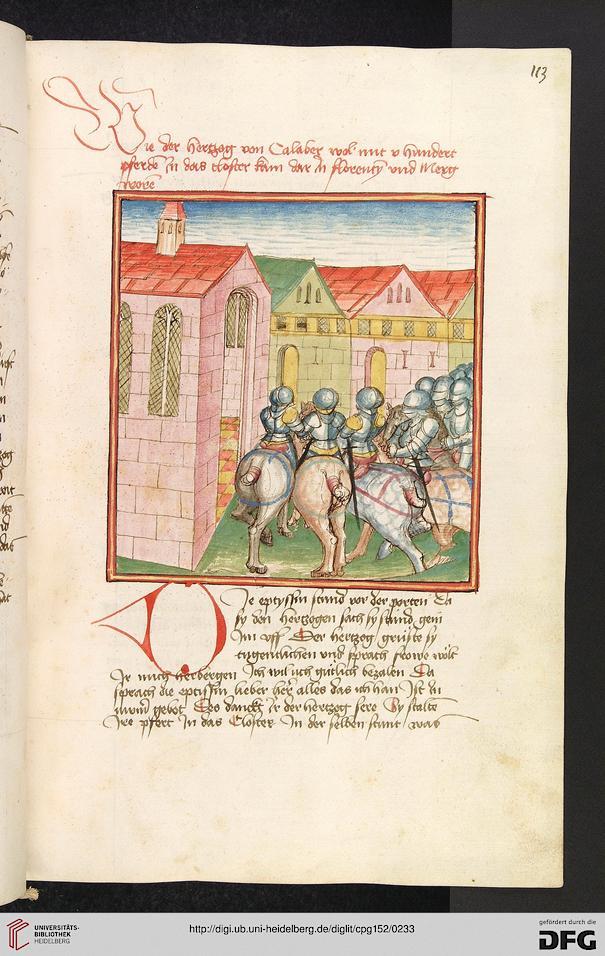 113
Wie der hertzog von Calaber wol mit v hundert
pferde in das closter kam dar In florentz und Merg
were
Die eptyssin stund vor der porten Da
sy den hertzogen sach sy stund gem
Im uff Der hertzog gruste sy
tugentlichen und sprach frowe wolt
Ir mich herbergen Ich wil uch gutlich bezalen Da
sprach die eptissin lieber her alles das ich han Ist in
uwerm gebot Des danckt Ir der hertzog sere Sy stalte
Ire pfert In das Closter In der selben stunt was
UNIVERSITÄTS-
BIBLIOTHEK
HEIDELBERG
http://digi.ub.uni-heidelberg.de/diglit/cpg152/0233
gefördert durch die
DFG